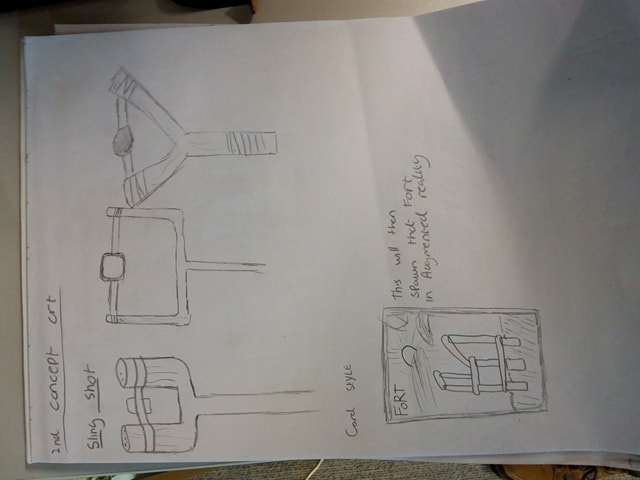 2nd concept art
Sling shot
Card STYLE
FORT
This will then
spawn that Fort
in Augmented reality